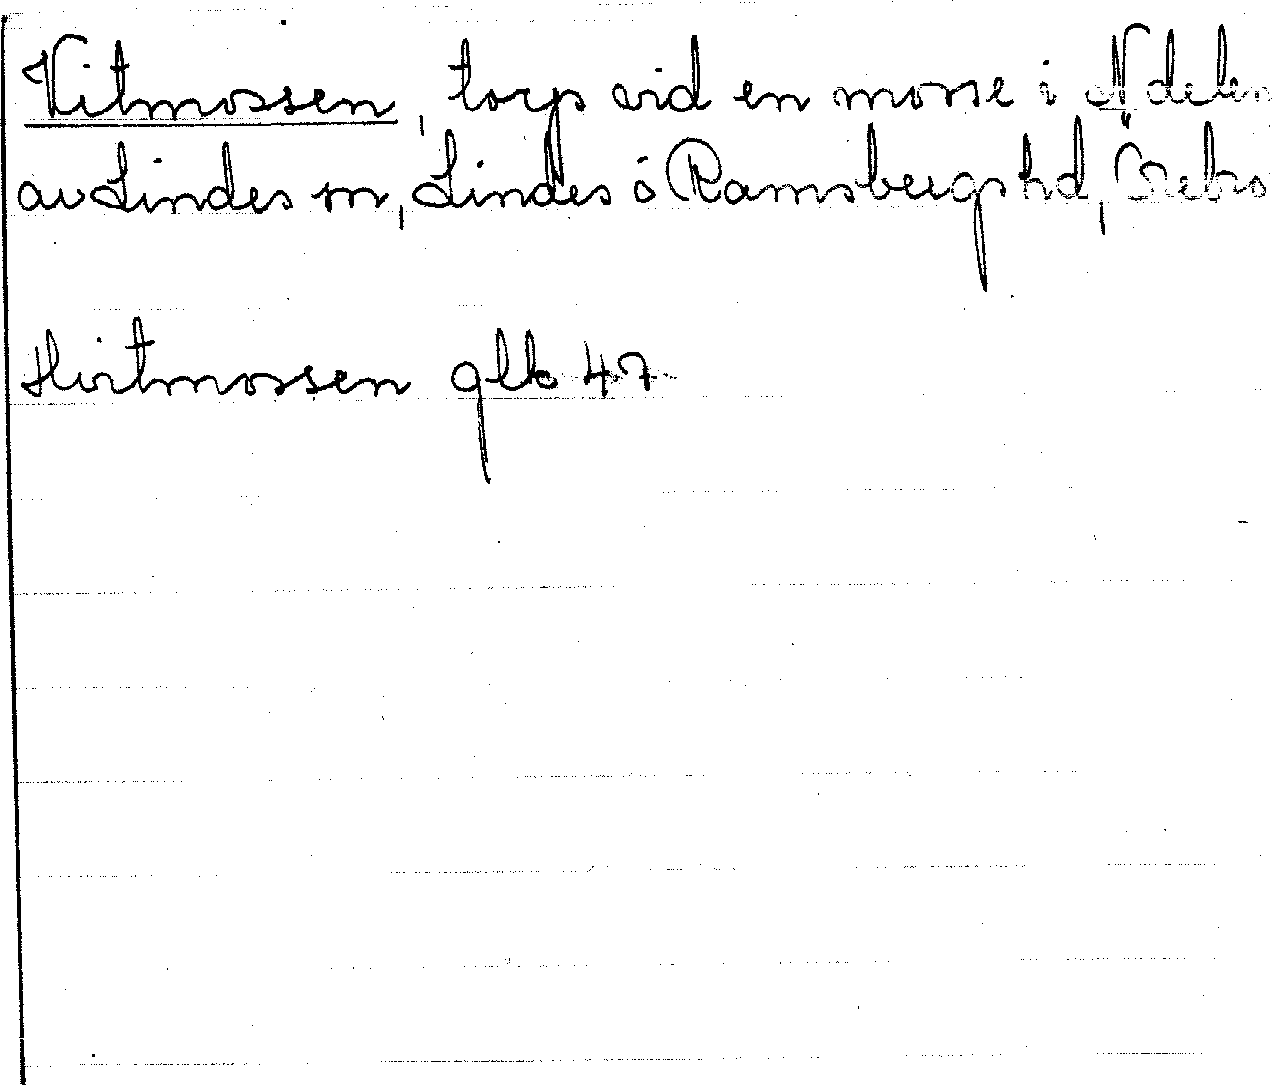 Vitmossen, torp vid en mosse i N delen
av Lindes sn, Lindes o Ramsbergs hd, Örebro
Hvitmossen glk 47